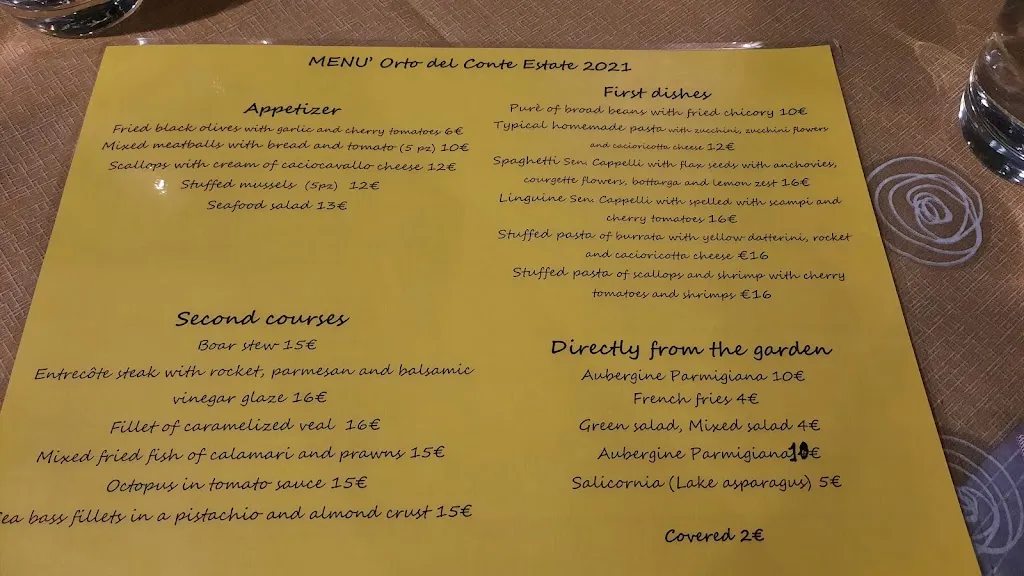 MENU' Orto del Conte Estate 2021
Appetizer
Fried black olives with garlic and cherry tomatoes 6€
Mixed meatballs with bread and tomato (5 pz) 10€
Scallops with cream of caciocavallo cheese 12€
Stuffed mussels (5pz) 12€
Seafood salad 13€
First dishes
Purè of broad beans with fried chicory 10€
Typical homemade pasta with zucchini, zucchini flowers
and cacioricotta cheese 12€
Spaghetti Sen. Cappelli with flax seeds with anchovies,
courgette flowers, bottarga and lemon zest 16€
Linguine Sen. Cappelli with spelled with scampi and
cherry tomatoes 16€
Stuffed pasta of burrata with yellow datterini, rocket
and cacioricotta cheese €16
Stuffed pasta of scallops and shrimp with cherry
tomatoes and shrimps €16
Second courses
Boar stew 15€
Entrecôte steak with rocket, parmesan and balsamic
vinegar glaze 16€
Fillet of caramelized veal 16€
Mixed fried fish of calamari and prawns 15€
Octopus in tomato sauce 15€
ea bass fillets in a pistachio and almond crust 15€
Directly from the garden
Aubergine Parmigiana 10€
French fries 4€
Green salad, Mixed salad 4€
Aubergine Parmigiana 10€
Salicornia (Lake asparagus) 5€
Covered 2€